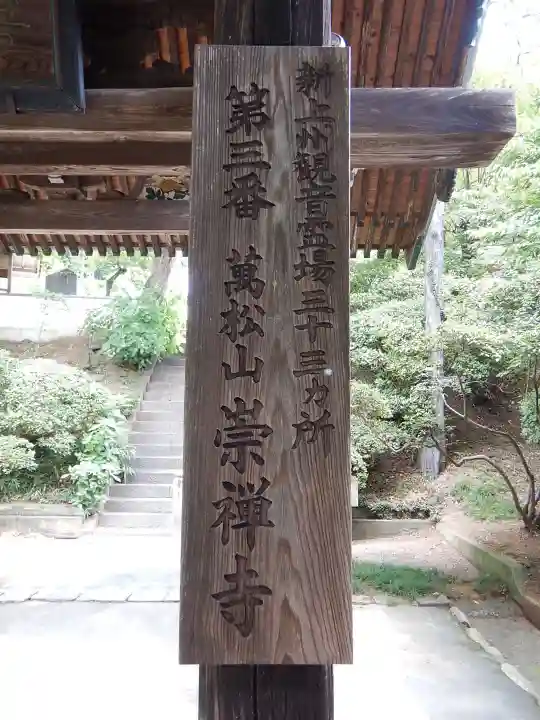 新上州観音霊場三十三カ所
第三番 萬松山崇禅寺